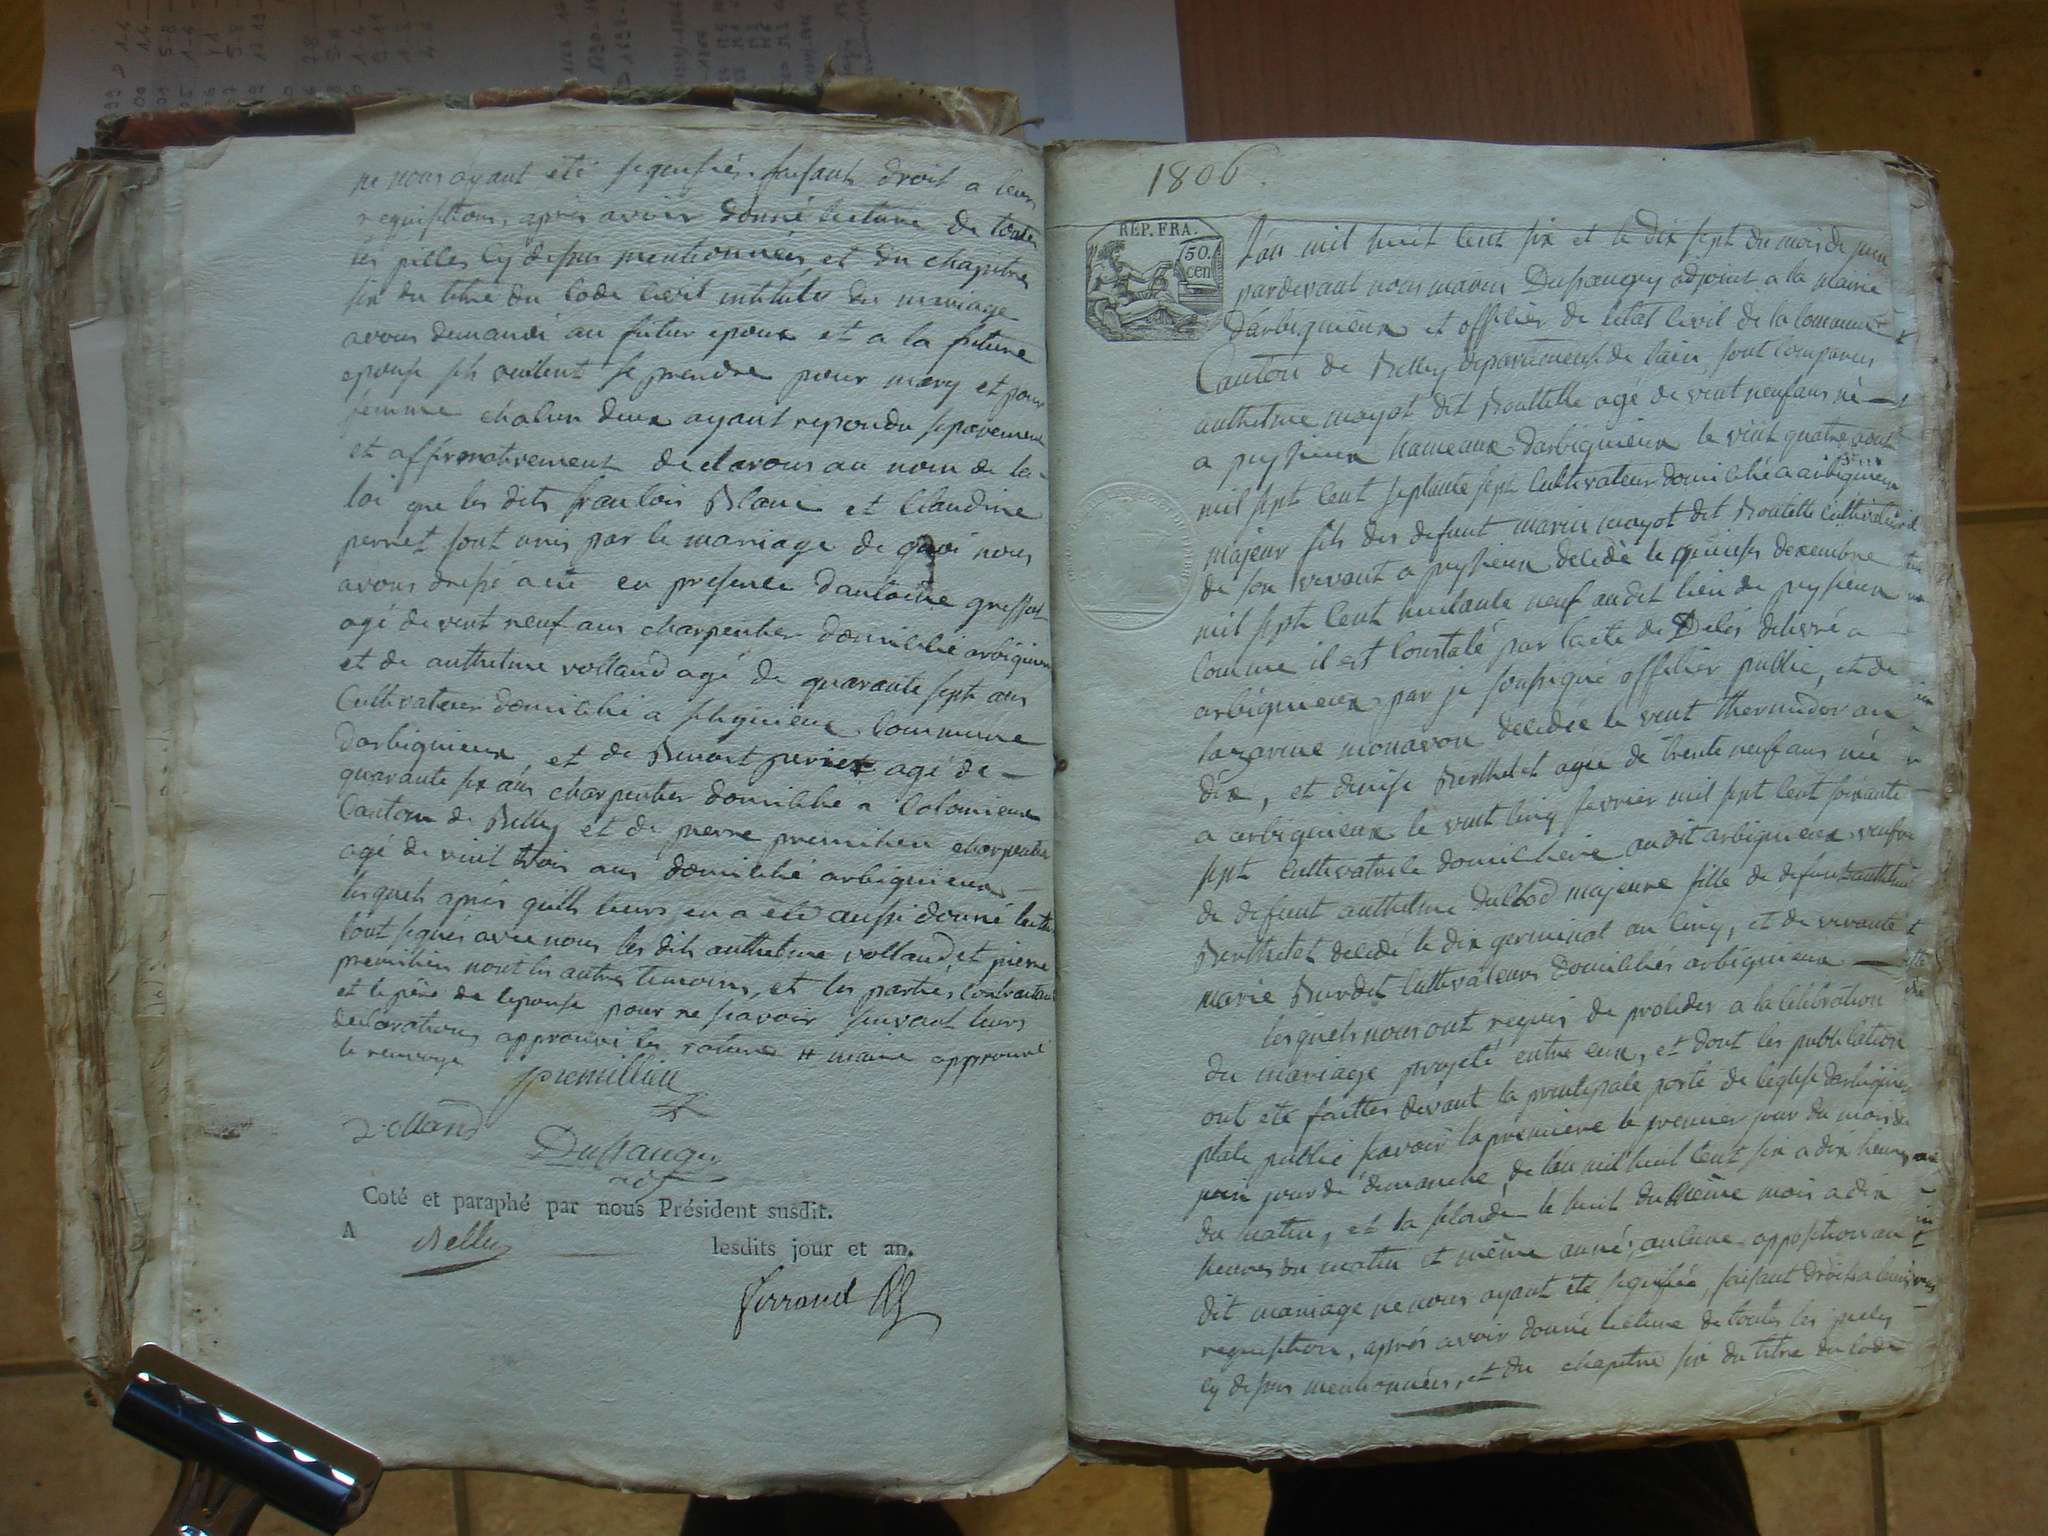 ne nous ayant été signifiée. faisant droit a leurs
requisitions, après avoir donné lecture de toutes
les pieces cy dessus mentionnées et du chapitre
six du titre du code civil intitulé du mariage
avons demandé au futur epoux et a la future
epouse sils veulent se prendre pour mary et pour
femme chalun deux ayant repondu separement
et affirmativement declarons au nom de la
loi que les dits francois Blanc et Claudine
perret sont unis par le mariage de quoi nous
avons dressé acte en presence dantoine
agé de vint neuf ans charpentier domicilié arbignieux
et de anthelme volland agé de quarante sept ans
Cultivateur domicilié a Commune
darbignieux et de Benoit perret agé de
quarante six ans charpentier domicilié a Colomieux
Canton de Belley et de pierre premillieu charpentier
agé de vint trois ans domicilié arbignieux
lesquels après quills leurs en a été aussi donné lecture
sont signés avec nous les dits anthelme volland et pierre
premillieu nont les autres temoins, et les parties contractantes
et le père de lepouse pour ne scavoir suivant leurs
declarations approuvé la rature # maire approuvé
le renvoye
premillieu
Volland
Dussaugey
adj
Coté et paraphé par nous Président susdit.
A Belley lesdits jour et an.
Ferrand
1806.
REP. FRA.
50. cen
L'an mil huit cent six et le dix sept du mois de juin
pardevant nous marin Dussaugey adjoint a la Mairie
d'arbignieux et officier de letat civil de la commune
Canton de Belley departement de lain sont comparus
anthelme mayot dit Boullette agé de vint neuf ans né
a pysieux hameaux darbignieux le vint quatre aout
mil sept cent septante sept Cultivateur domicilié a arbignieux
majeur fils des defunt marin mayot dit Boulette Cultivateur
de son vivant a pysieux decedé le quinse decembre
mil sept cent huitante neuf audit lieu de pysieux
comme il est constaté par lacte de Décés delivré a
arbignieux par je soussigné officier public, et de
lazarine monavon decedée le vint thermidor an
dix, et denise Berthelet agée de trente neuf ans née
a arbignieux le vint cinq fevrier mil sept cent soixante
sept Cultivatrice domiciliée audit arbignieux veufve
de defunt anthelme majeure fille de defunt anthelme
Berthelet decedé le dix germinal an cinq, et de vivante
marie Burdet Cultivateurs domiciliés arbignieux
lesquels nous ont requis de proceder a la celebration
du mariage projeté entre eux, et dont les publication
ont eté faittes devant la principale porte de leglise darbignieux
place public scavoir la premiere le premier jour du mois de
juin jour de dimanche de lan mil huit cent six a dix heures
du matin, et la seconde le huit du même mois a dix
heures du matin et même année, aulune opposition au
dit mariage ne nous ayant été signifiée, faisant droit a leurs
requisition, après avoir donné lecture de toutes les pieces
cy dessus mentionnées, et du chapitre six du titre du code